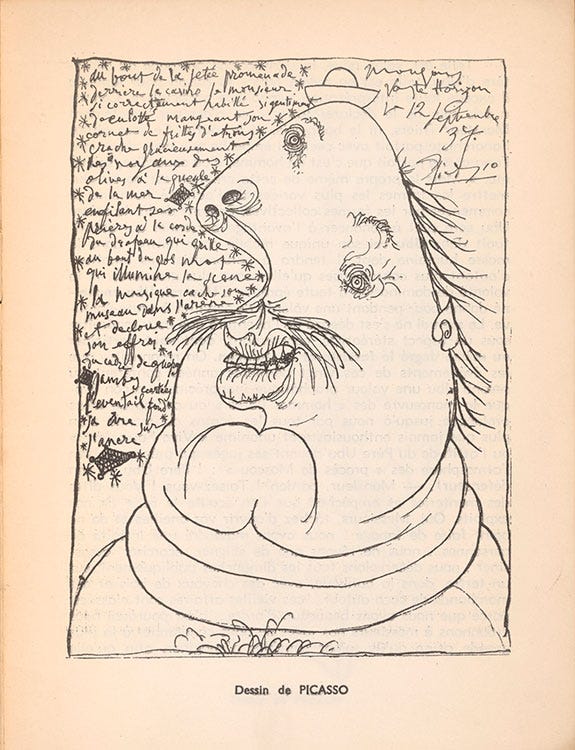 au bout de la jetée promenade
derrière le casino le monsieur
si correctement habillé si gentiment
déculotté mangeant son
cornet de frittes d'étrons
crache gracieusement
les noyaux des
olives à la gueule
de la mer
enfilant ses
prières à la corde
du drapeau qui grille
au bout du gros mot
qui illumine la scène
la musique cache son
museau dans l'arène
et décloue
son effroi
du cadre de guêpes
jambes
l'éventail fond
sa cire sur
l'ancre
Mougins
Vaste Horizon
le 12 septembre
37.
Picasso
Dessin de PICASSO